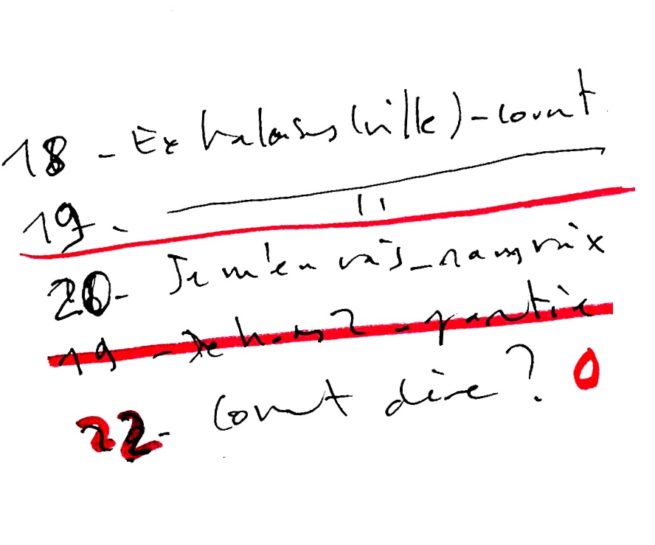 18 - Exhalaisons (ville) - court
19 - "
20 - Je m'en vais - sans voix
19 - Dehors 2 - partie
22 - court dire ? 0